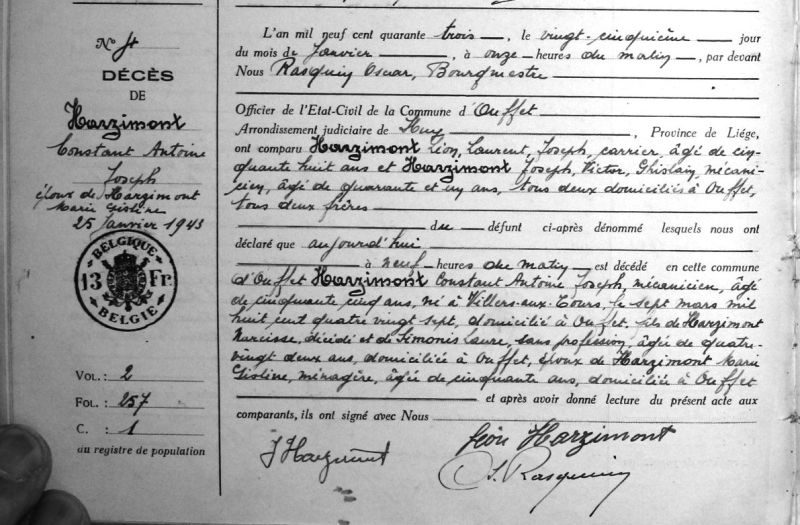 N° 4
DÉCÈS
DE
Harzimont
Constant Antoine
Joseph
époux de Harzimont
Marie Gisline
25 Janvier 1943
BELGIQUE
13 Fr.
BELGIE
VOL.: 2
FOL.: 257
C. : 1
au registre de population
L'an mil neuf cent quarante trois, le vingt-cinquième jour
du mois de Janvier, à onze heures du matin, par devant
Nous Rasquin Oscar, Bourgmestre
Officier de l'Etat-Civil de la Commune d'Ouffet
Arrondissement judiciaire de Huy, Province de Liége,
ont comparu Harzimont Léon, Laurent, Joseph, carrier, âgé de cin-
quante huit ans et Harzimont Joseph, Victor, Ghislain, mécani-
cien, âgé de quarante et un ans, tous deux domiciliés à Ouffet,
tous deux frères
du défunt ci-après dénommé lesquels nous ont
déclaré que aujourd'hui
à neuf heures du matin est décédé en cette commune
d'Ouffet Harzimont Constant Antoine Joseph, mécanicien, âgé
de cinquante cinq ans, né à Villers-aux-Tours, le sept mars mil
huit cent quatre vingt sept, domicilié à Ouffet, fils de Harzimont
Narcisse, décédé et de Simonis Laure, sans profession, âgée de quatre-
vingt deux ans, domiciliée à Ouffet, époux de Harzimont Marie
Gisline, ménagère, âgée de cinquante ans, domiciliée à Ouffet
et après avoir donné lecture du présent acte aux
comparants, ils ont signé avec Nous
J Harzimont
Léon Harzimont
O. Rasquin